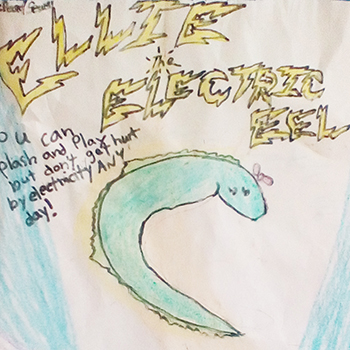 ELLIE
the
ELECTRIC
EEL
ou can
plash and Play
but don't get hurt
by electricity ANY
day!